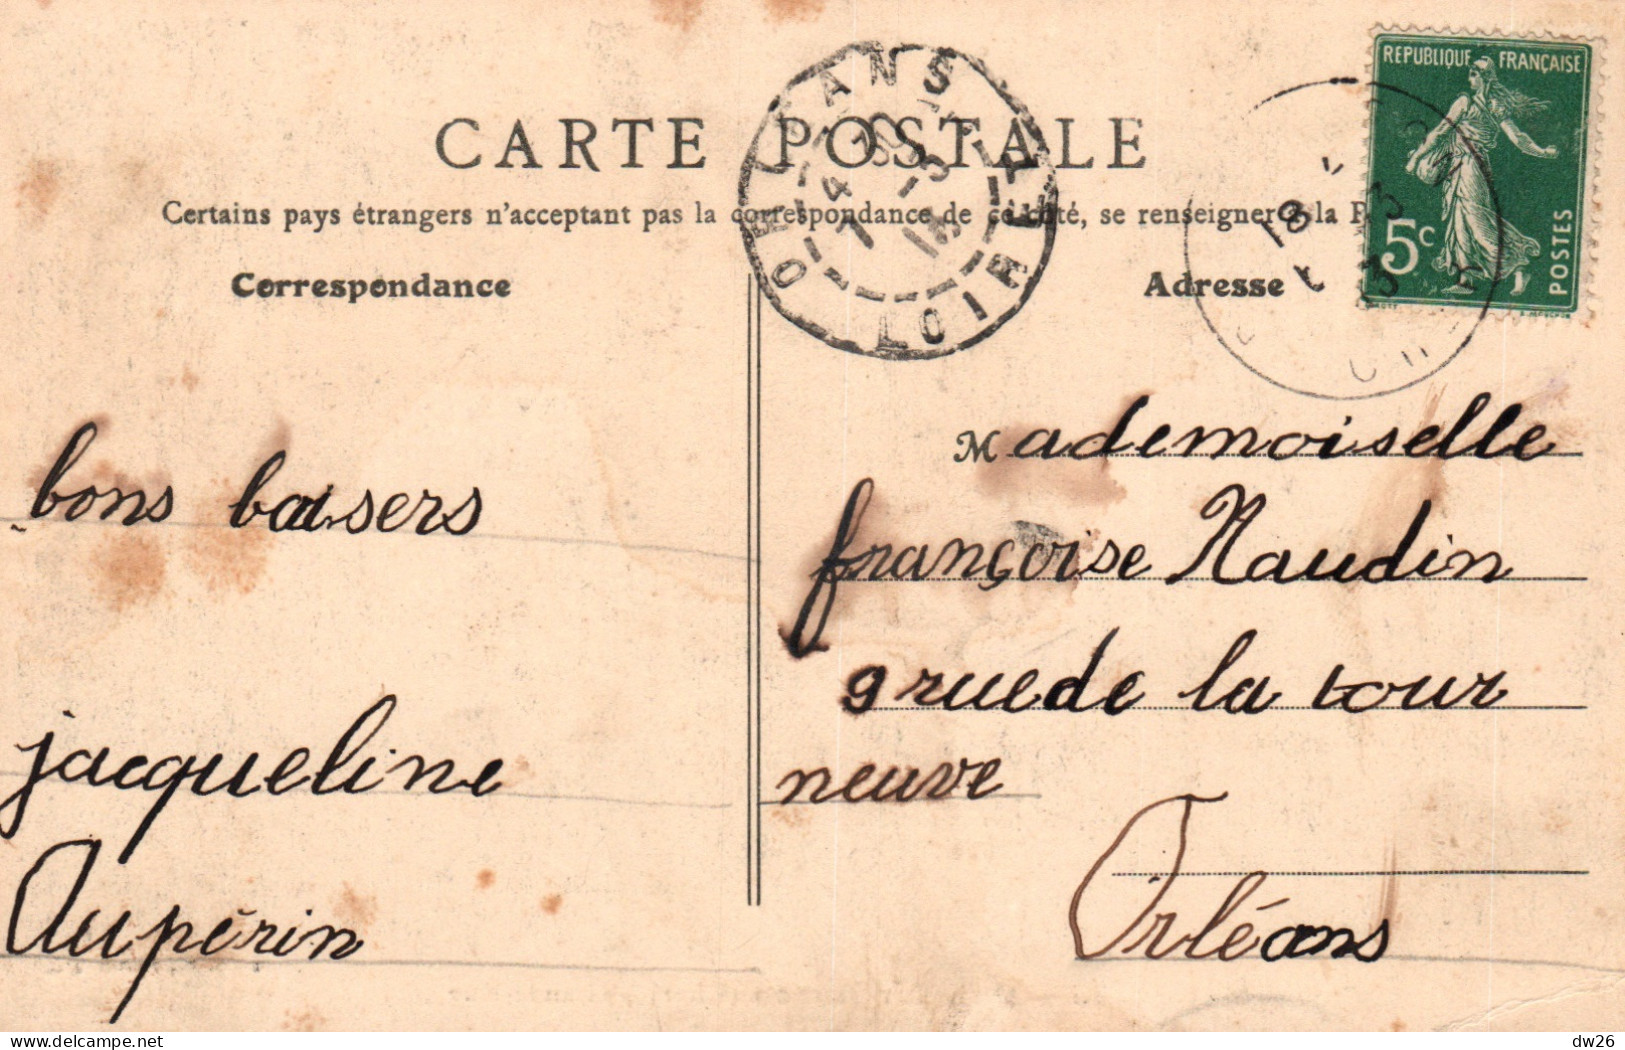 CARTE POSTALE
Certains pays étrangers n'acceptant pas la correspondance de ce côté, se renseigner à la
Correspondance
Adresse
REPUBLIQUE FRANÇAISE
5c
POSTES
ORLEANS
LOIRET
bons baisers
jacqueline
Aupérin
Mademoiselle
françoise Naudin
9 rue de la tour
neuve
Orléans
dw26